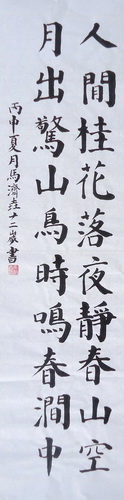 人閒桂花落夜靜春山空
月出驚山鳥時鳴春澗中
丙申夏月馬濟垚十二歲書